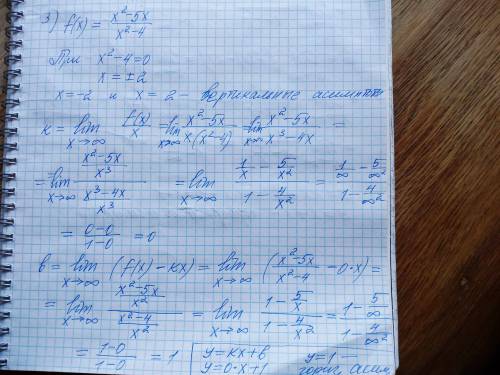 3) f(x) = (x²-5x)/(x²-4)
При x²-4=0
x = ±2
x=-2 и x=2 - вертикальные асимпт
к = lim x→∞ f(x)/x = lim x→∞ (x²-5x)/(x(x²-4)) = lim x→∞ (x²-5x)/(x³-4x) =
= lim x→∞ ((x²-5x)/x³)/((x³-4x)/x³) = lim x→∞ (1/x - 5/x²)/(1 - 4/x²) = (1/∞ - 5/∞²)/(1 - 4/∞²)
= (0-0)/(1-0) = 0
в = lim x→∞ (f(x) - кx) = lim x→∞ ((x²-5x)/(x²-4) - 0·x) =
= lim x→∞ ((x²-5x)/x²)/((x²-4)/x²) = lim x→∞ (1 - 5/x)/(1 - 4/x²) = (1 - 5/∞)/(1 - 4/∞²)
= (1-0)/(1-0) = 1 [ y=кx+в y=1 —
y=0·x+1 гориз. асим